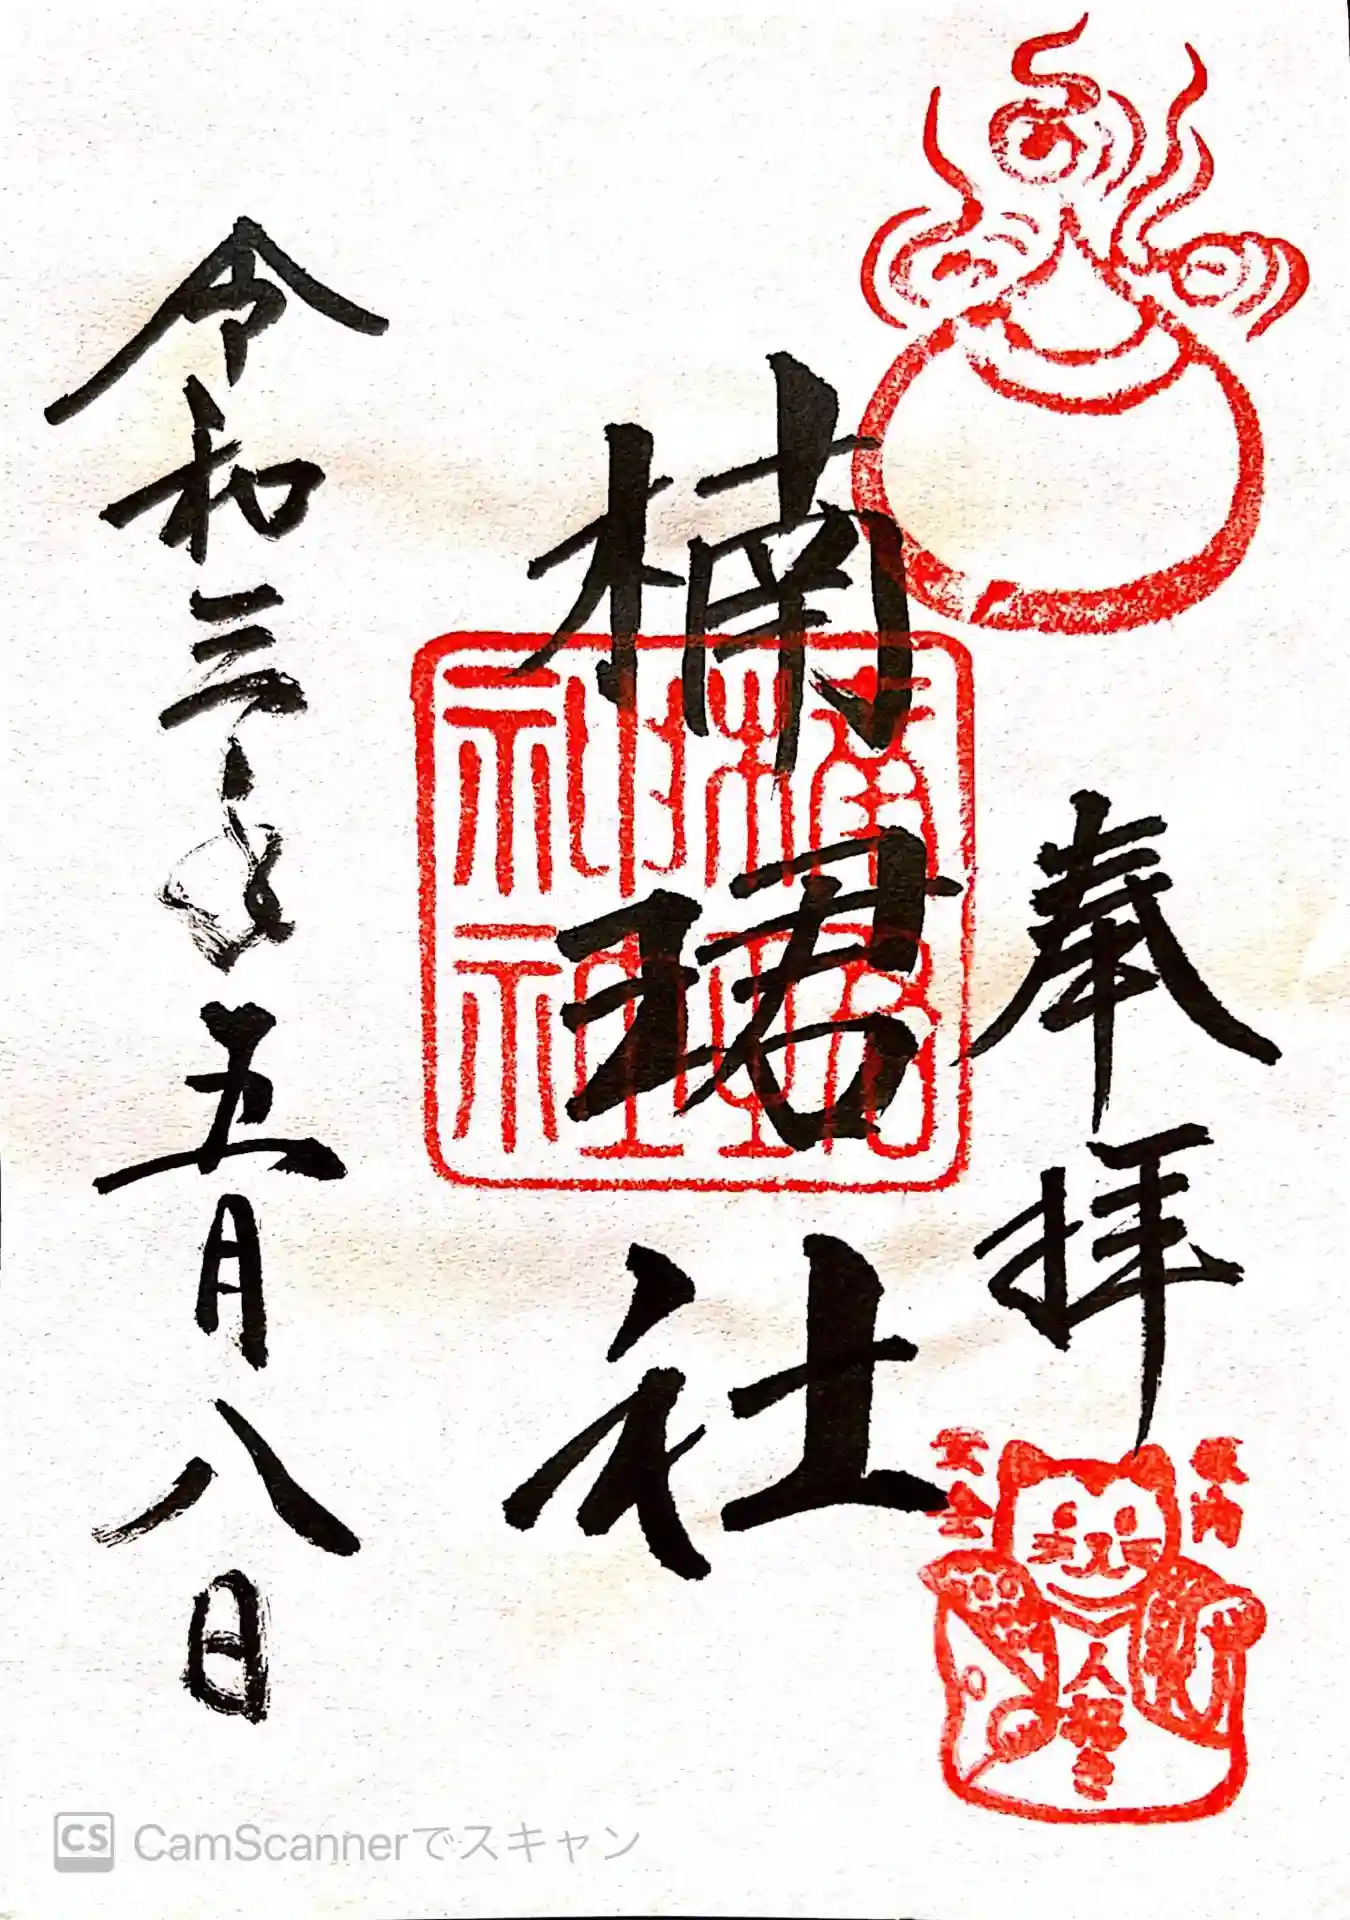 奉拝
楠珺社
令和三年五月八日
家内
安全
人招き
CamScannerでスキャン